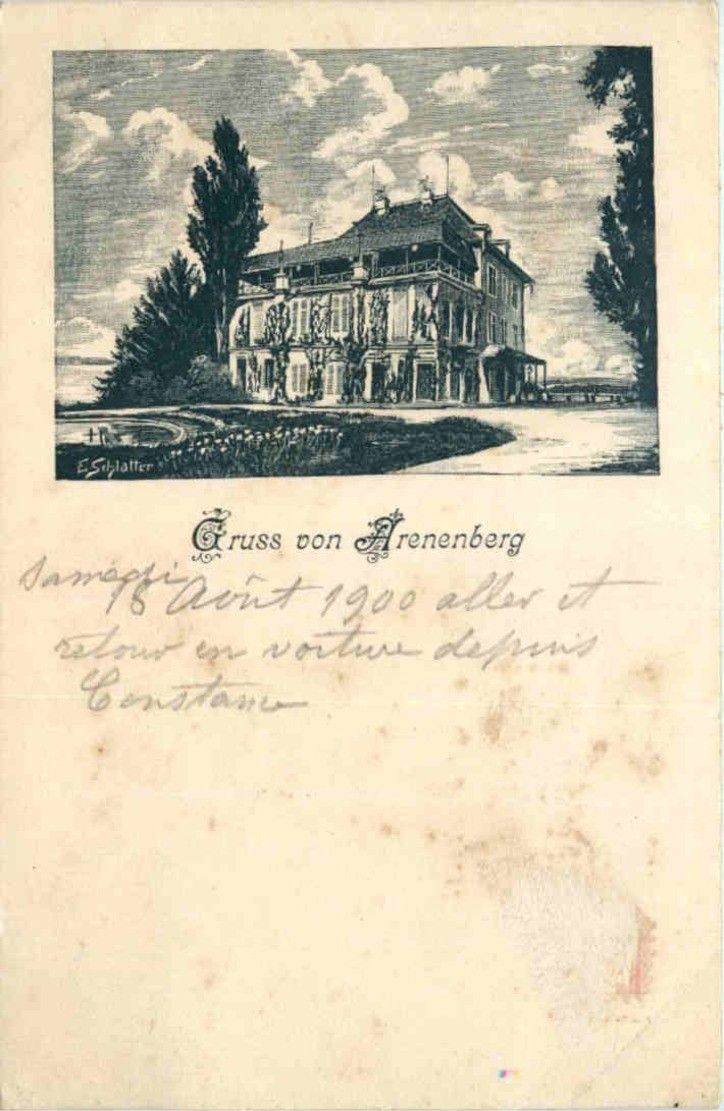 E. Schlatter
Gruss von Arenenberg
Samedi
18 Août 1900 aller et
retour en voiture depuis
Constance